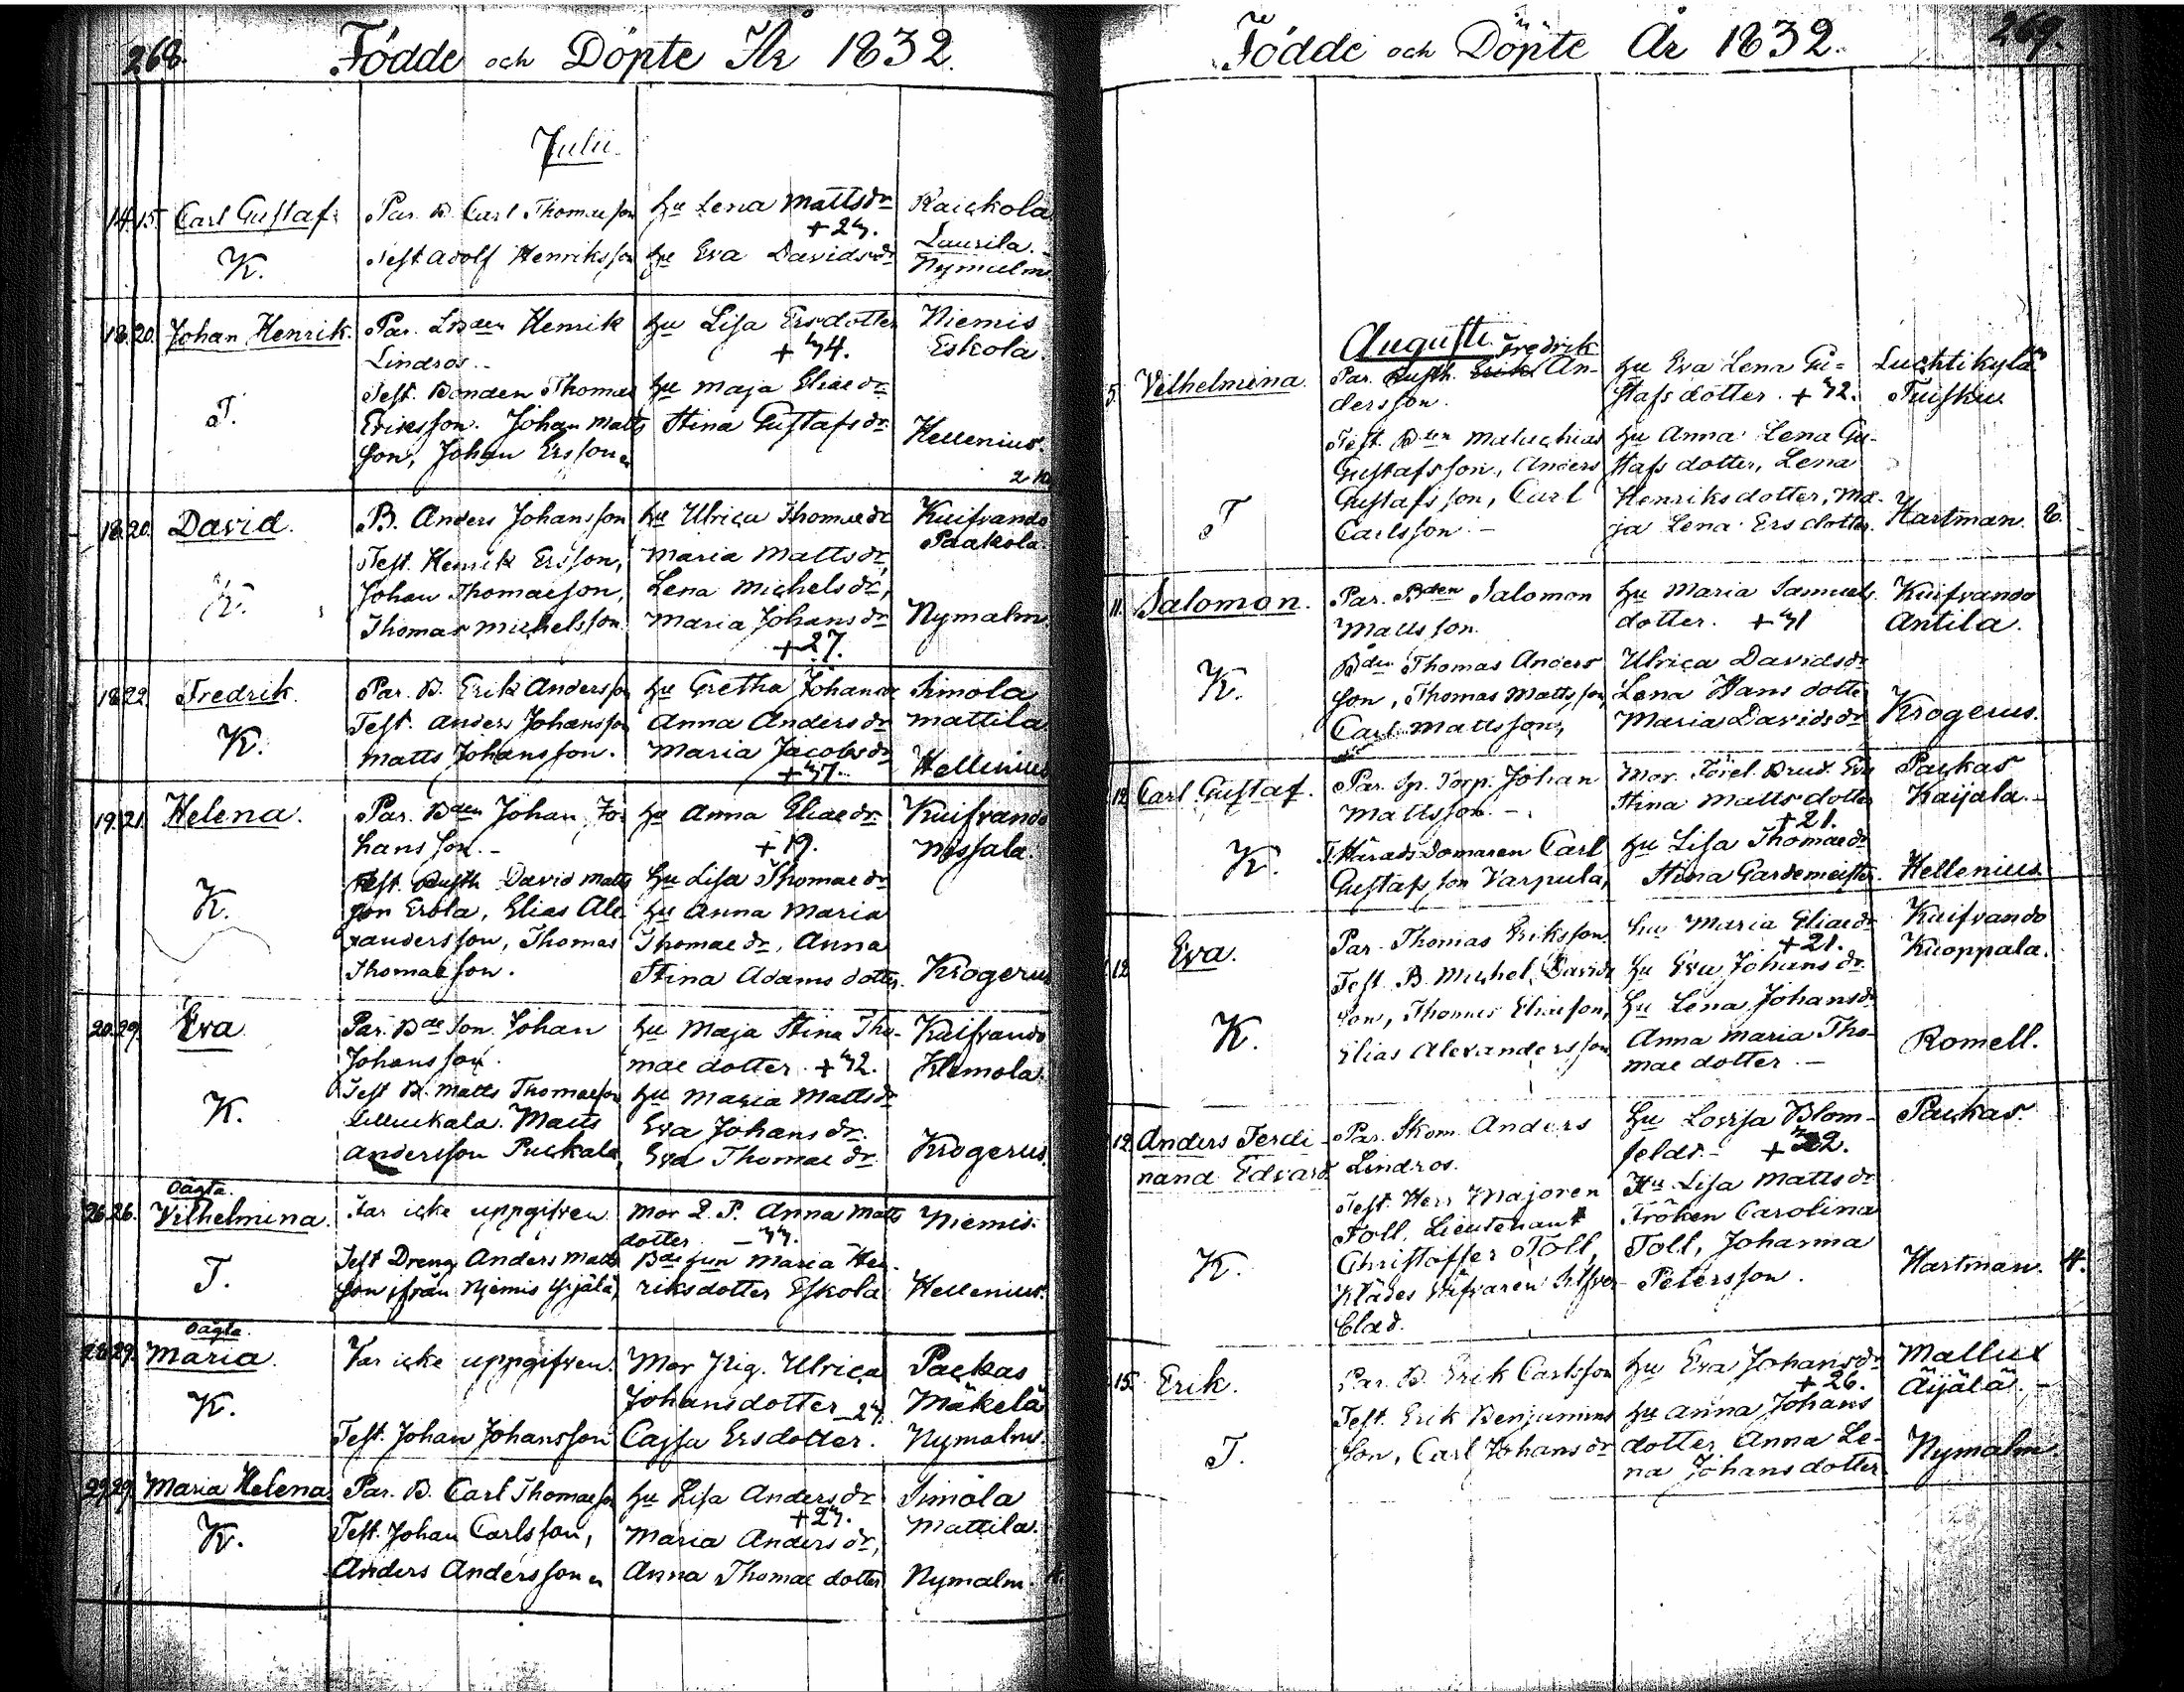 268.
Födde och Döpte År 1832.
Julii
14. 15. Carl Gustaf. Par. B. Carl Thomaeson hu Lena Mattsdr Raickola
+ 24. Laurila.
K. Test Adolf Henriksson hu Eva Davidsdr Nymalm.
18. 20. Johan Henrik. Par. Henrik hu Lisa Ersdotter Niemis
Lindros. + 44. Eskola.
Test. Bonden Thomas hu Maja Eliaedr
T. Eriksson. Johan Matts Stina Gustafsdr Hellenius.
son, Johan Ersson
18. 20. David. B. Anders Johansson hu Ulrica Thomaedr Kuifvando
Paakola.
Test. Henrik Ersson, Maria Mattsdr,
K. Johan Thomaeson, Lena Michelsdr,
Thomas Michelsson. Maria Johansdr Nymalm.
+ 27.
18. 22. Fredrik. Par. B. Erik Andersson hu Gretha Johansdr Simola
Test. Anders Johansson Anna Andersdr Mattila
K. Matts Johansson. Maria Jacobsdr Hellenius
19. 21. Helena. Par. Bden Johan Jo- hu Anna Eliaedr Kuifvando
hansson. + 19. Nossala.
Test. Rusth David Matts hu Lisa Thomaedr
K. son Erola, Elias Ale- hu Anna Maria
xandersson, Thomas Thomaedr, Anna
Thomaeson. Stina Adamsdotter. Krogerus
20. 29. Eva Par. Bdeson Johan hu Maja Stina Tho- Kuifvando
Johansson. mae dotter. + 42. Klemola.
Test B. Matts Thomaeson hu Maria Mattsdr
K. Matts Eva Johansdr.
Andersson Puckala, Eva Thomaedr Krogerus.
Oägta.
26. 26. Vilhelmina. Far icke uppgifven Mor Anna Matts Niemis.
dotter
Test Dreng Anders Matts Maria Hen-
T. son ifrån Niemis Yijälä, riksdotter Eskola Hellenius.
Oägta.
28. 29. Maria. Far icke uppgifven. Mor Pig. Ulrica Packas
K. Johansdotter Mäkelä
Test. Johan Johansson Cajsa Ersdotter. Nymalm.
29. 29. Maria Helena Par. B. Carl Thomaeson hu Lisa Andersdr Simola
+ 24. Mattila.
K. Test. Johan Carlsson, Maria Andersdr,
Anders Andersson Anna Thomae dotter Nymalm.
269.
Födde och Döpte År 1832.
Augusti.
Fredrik
5. Vilhelmina. Par. Rusth. Erik An- hu Eva Lena Gu- Luchtikylä
dersson. stafsdotter. + 42. Tuisku
Test. Bden Malachias hu Anna Lena Gu-
Gustafsson, Anders stafsdotter, Lena
T Gustafsson, Carl Henriksdotter, Ma-
Carlsson. ja Lena Ersdotter. Hartman.
11. Salomon. Par. Bden Salomon hu Maria Samuels Kuifvando
Mattsson. dotter. + 41 Antila.
Bden Thomas Anders Ulrica Davidsdr
K. son, Thomas Mattsson, Lena Hansdotter
Carl Mattsson, Maria Davidsdr Krogerus.
12 Carl Gustaf. Par. Sp. Torp. Johan Mor. Eva Packas
Mattsson. Stina Mattsdotter Kaijala.
+ 21.
K. T. Häradsdomaren Carl hu Lisa Thomaedr
Gustafsson Varpula, Stina Gardemeister. Hellenius.
12 Eva. Par. Thomas Eriksson. hu Maria Eliaedr Kuifvando
+ 21. Kuoppala.
Test. B. Michel Davids hu Eva Johansdr.
son, Thomas Eliaeson, hu Lena Johansdr
K. Elias Alexandersson Anna Maria Tho- Romell.
mae dotter.
12 Anders Ferdi- Par. Skom. Anders hu Lovisa Blom- Packas.
nand Edvard Lindros. feldt.
Test. Herr Majoren Hu Lisa Mattsdr
Toll, Lieutenant Fröken Carolina
K. Christoffer Toll, Toll, Johanna
Klädes Petersson. Hartman.
blad.
15. Erik. Par. B. Erik Carlsson hu Eva Johansdr Mallux
+ 26. Äijälä.
Test. Erik Benjamins hu Anna Johans
T. son, Carl Johansdr dotter Anna Le- Nymalm
na Johansdotter